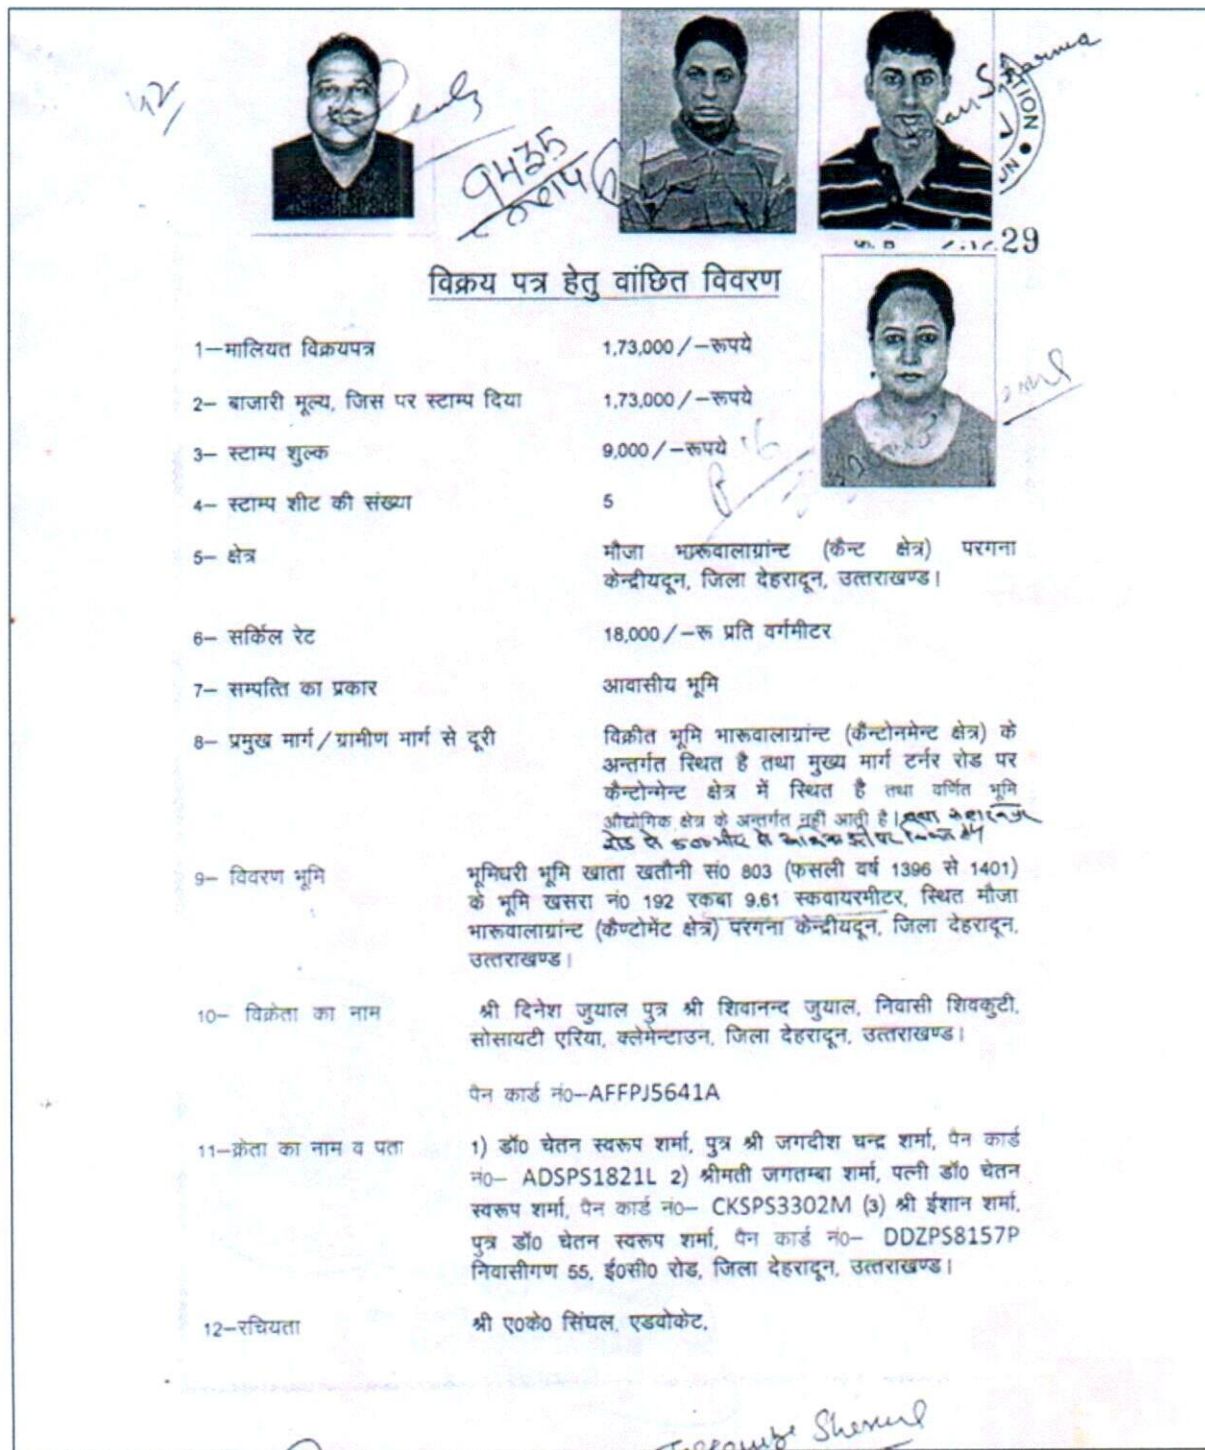 42
9435
Sharma
TION
29
विक्रय पत्र हेतु वांछित विवरण
1—मालियत विक्रयपत्र 1,73,000/—रूपये
2— बाजारी मूल्य, जिस पर स्टाम्प दिया 1,73,000/—रूपये
3— स्टाम्प शुल्क 9,000/—रूपये
4— स्टाम्प शीट की संख्या 5
5— क्षेत्र मौजा भारूवालाग्रांन्ट (कैन्ट क्षेत्र) परगना
केन्द्रीयदून, जिला देहरादून, उत्तराखण्ड।
6— सर्किल रेट 18,000/—रू प्रति वर्गमीटर
7— सम्पत्ति का प्रकार आवासीय भूमि
8— प्रमुख मार्ग/ग्रामीण मार्ग से दूरी विक्रीत भूमि भारूवालाग्रांन्ट (कैन्टोनमेन्ट क्षेत्र) के
अन्तर्गत स्थित है तथा मुख्य मार्ग टर्नर रोड पर
कैन्टोन्मेन्ट क्षेत्र में स्थित है तथा वर्णित भूमि
औद्योगिक क्षेत्र के अन्तर्गत नहीं आती है। तथा
रोड से 500 मीटर से अधिक
9— विवरण भूमि भूमिधरी भूमि खाता खतौनी सं0 803 (फसली वर्ष 1396 से 1401)
के भूमि खसरा नं0 192 रकबा 9.61 स्कवायरमीटर, स्थित मौजा
भारूवालाग्रांन्ट (कैण्टोमेंट क्षेत्र) परगना केन्द्रीयदून, जिला देहरादून,
उत्तराखण्ड।
10— विक्रेता का नाम श्री दिनेश जुयाल पुत्र श्री शिवानन्द जुयाल, निवासी शिवकुटी,
सोसायटी एरिया, क्लेमेन्टाउन, जिला देहरादून, उत्तराखण्ड।
पैन कार्ड नं0—AFFPJ5641A
11—क्रेता का नाम व पता 1) डॉ0 चेतन स्वरूप शर्मा, पुत्र श्री जगदीश चन्द्र शर्मा, पैन कार्ड
नं0— ADSPS1821L 2) श्रीमती जगतम्बा शर्मा, पत्नी डॉ0 चेतन
स्वरूप शर्मा, पैन कार्ड नं0— CKSPS3302M (3) श्री ईशान शर्मा,
पुत्र डॉ0 चेतन स्वरूप शर्मा, पैन कार्ड नं0— DDZPS8157P
निवासीगण 55, ई0सी0 रोड, जिला देहरादून, उत्तराखण्ड।
12—रचियता श्री ए0के0 सिंघल, एडवोकेट,